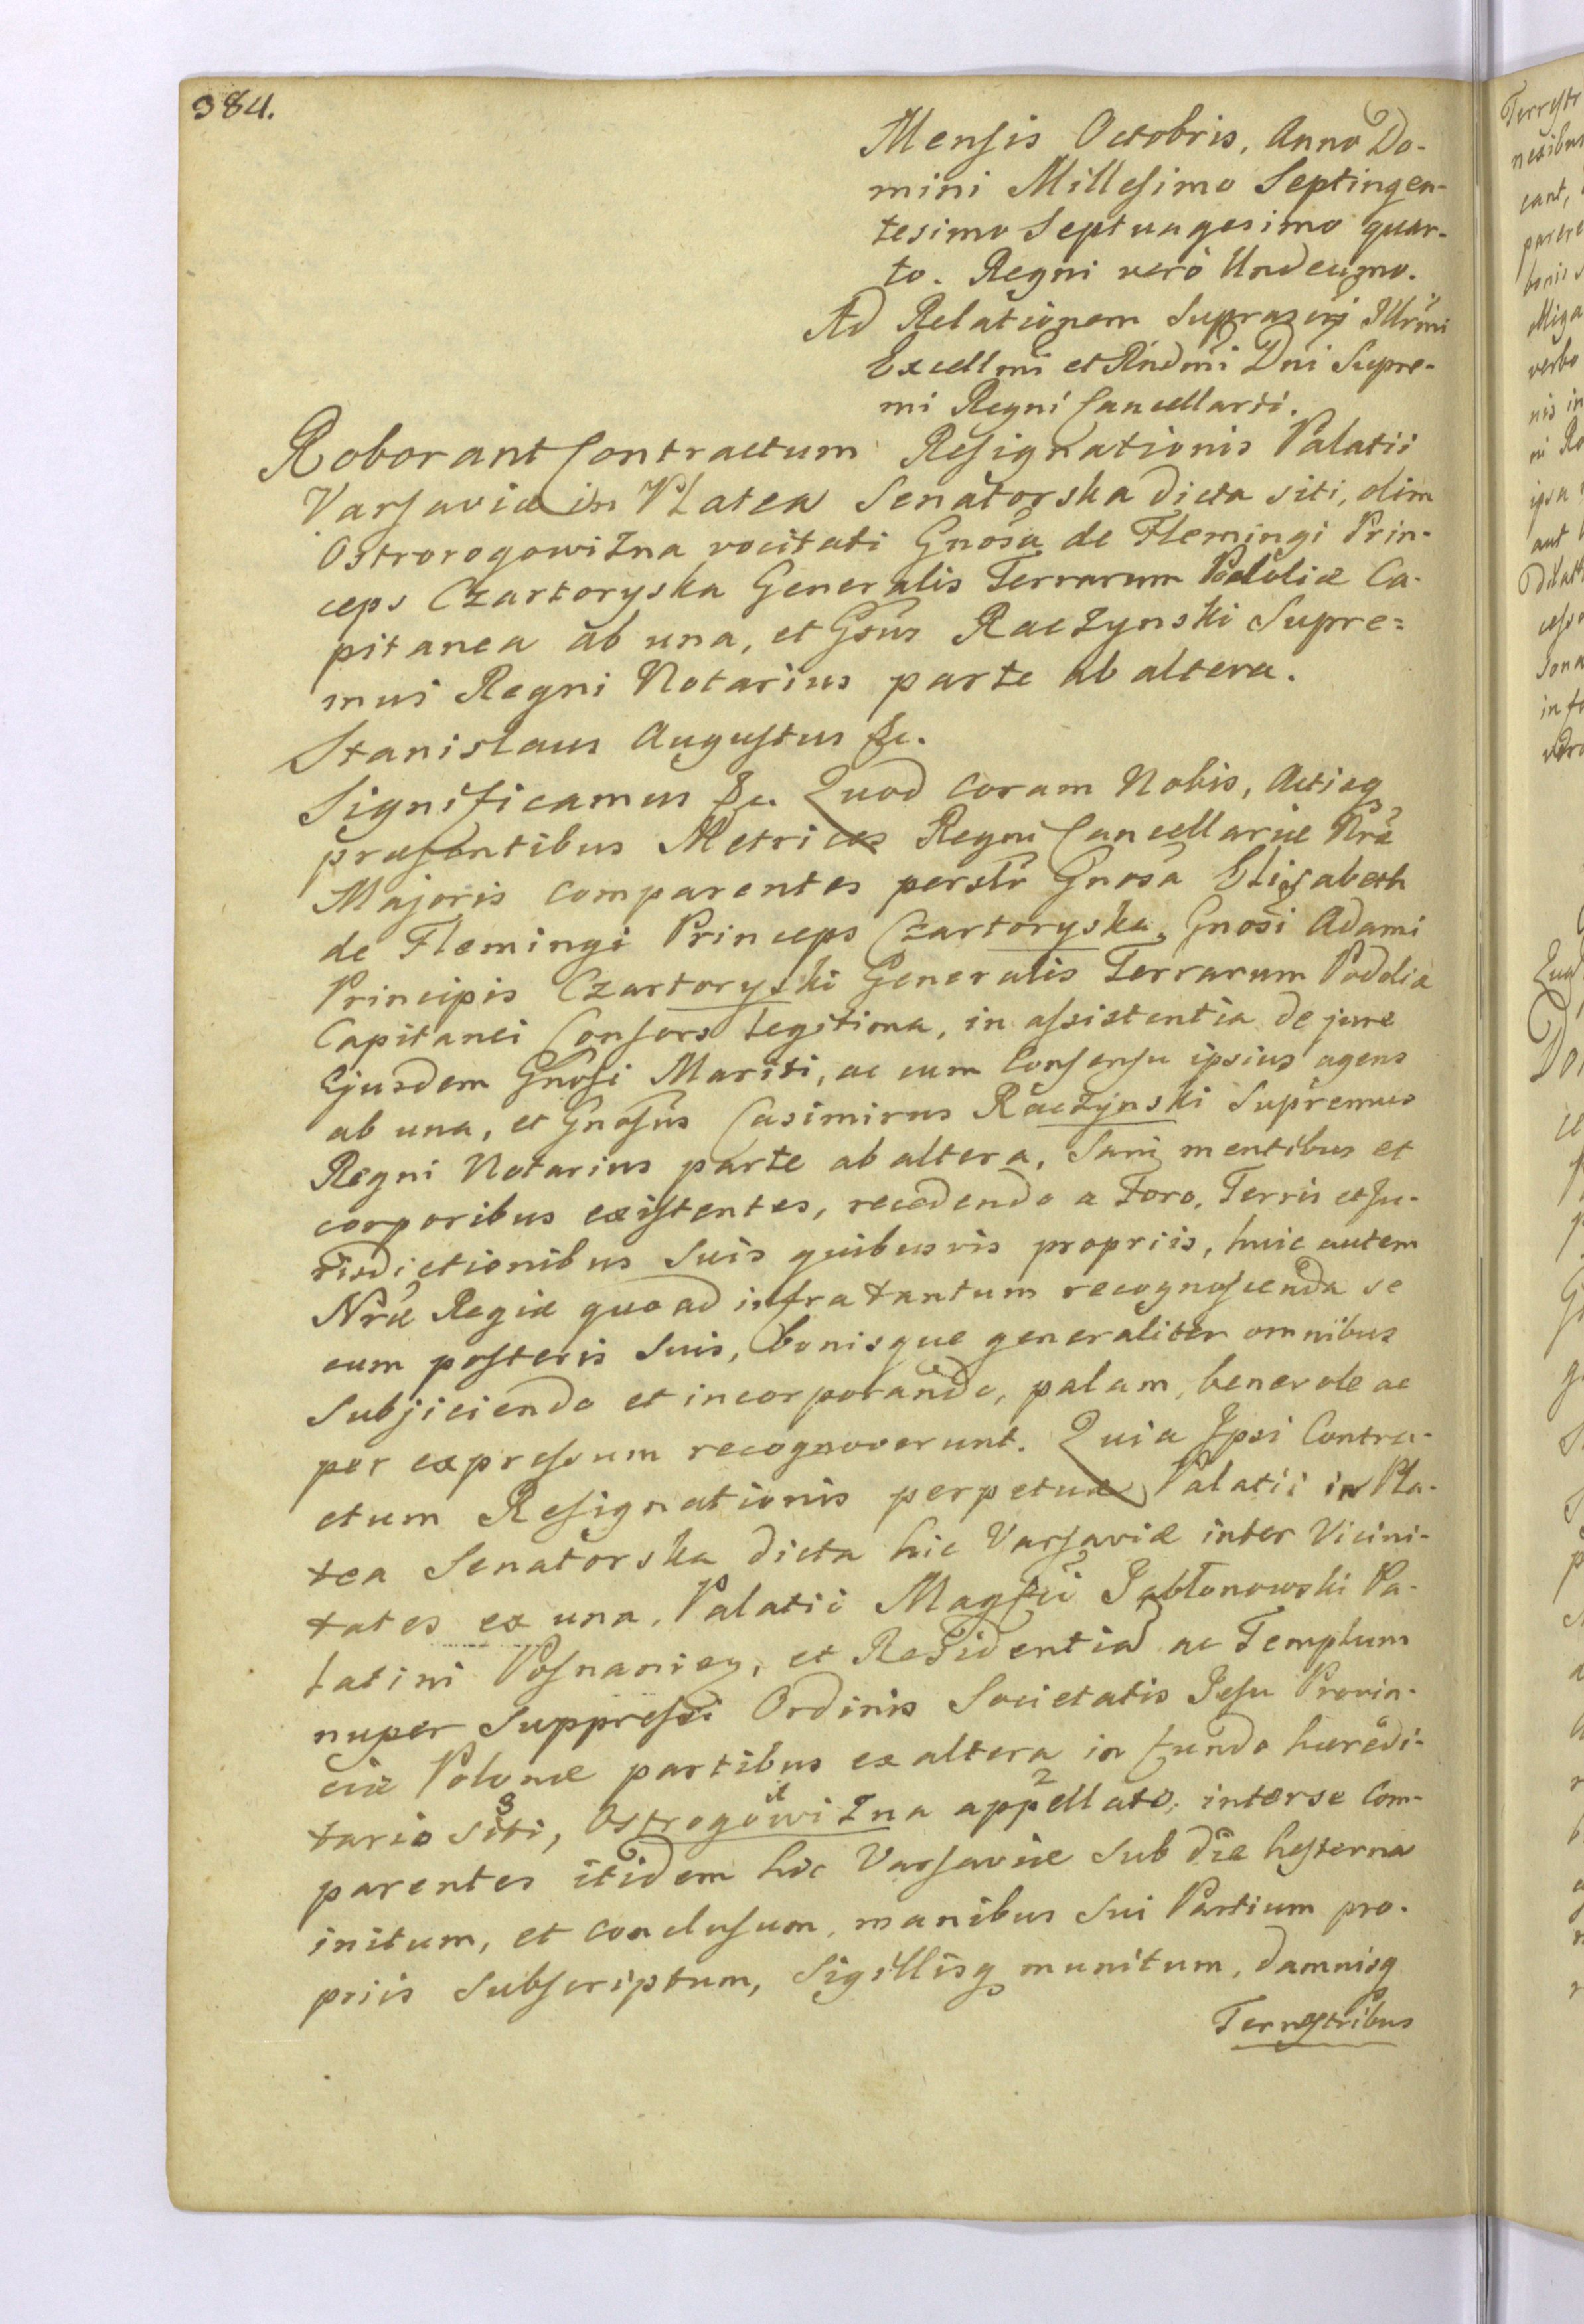 384.
Mensis Octobris, Anno Do-
mini Millesimo Septingen-
tesimo Septuagesimo quar-
to. Regni verò Undecimo.
Ad Relationem Suprascrip Illrmi
Excellmi et Rndmi Dni Supre-
mi Regni Cancellarii.
Roborant Contractum Resignationis Palatii
Varsaviæ in Platea Senatorska dicta siti, olim
Ostrorogowizna vocitati Gnosa de Flemingi Prin-
ceps Czartoryska Generalis Terrarum Podoliæ Ca-
pitanea ab una, et Gsus Raczynski Supre=
mus Regni Notarius parte ab altera.
Stanislaus Augustus &c.
Significamus &c. Quod coram Nobis, Actisq
præsentibus Metrices Regni Cancellariæ Nræ
Majoris comparentes perslr Gnosa Elizabeth
de Flemingi Princeps Czartoryska, Gnosi Adami
Principis Czartoryski Generalis Terrarum Podoliæ
Capitanei Consors legitima, in assistentia de jure
Ejusdem Gnosi Mariti, ac cum Consensu ipsius agens
ab una, et Gnosus Casimirus Raczÿnski Supremus
Regni Notarius parte ab altera, Sani mentibus et
corporibus existentes, recedendo a Foro, Terris et Ju-
risdictionibus Suis quibusvis propriis, huic autem
Nræ Regiæ quoad infra tantum recognoscenda se
cum posteris suis, bonisque generaliter omnibus
Subjiciendo et incorporando, palam, benevole ac
per expressum recognoverunt. Quia Ipsi Contra-
ctum Resignationis perpetuæ Palatii in Pla-
tea Senatorska dicta hic Varsaviæ inter Vicini-
tates ex una, Palatii Magfci Jabłonowski Pa-
latini Posnanien, et Residentiã ac Templum
nuper Suppressi Ordinis Societatis Jesu Provin-
ciæ Polonæ partibus ex altera in fundo hæredi-
tario siti, Ostrogowizna appellato, interse Com-
parentes itidem hic Varsaviæ sub die hesterna
initum, et conclusum, manibus Sui Partium pro-
priis Subscriptum, Sigillisq munitum, damnisq
Terrestribus